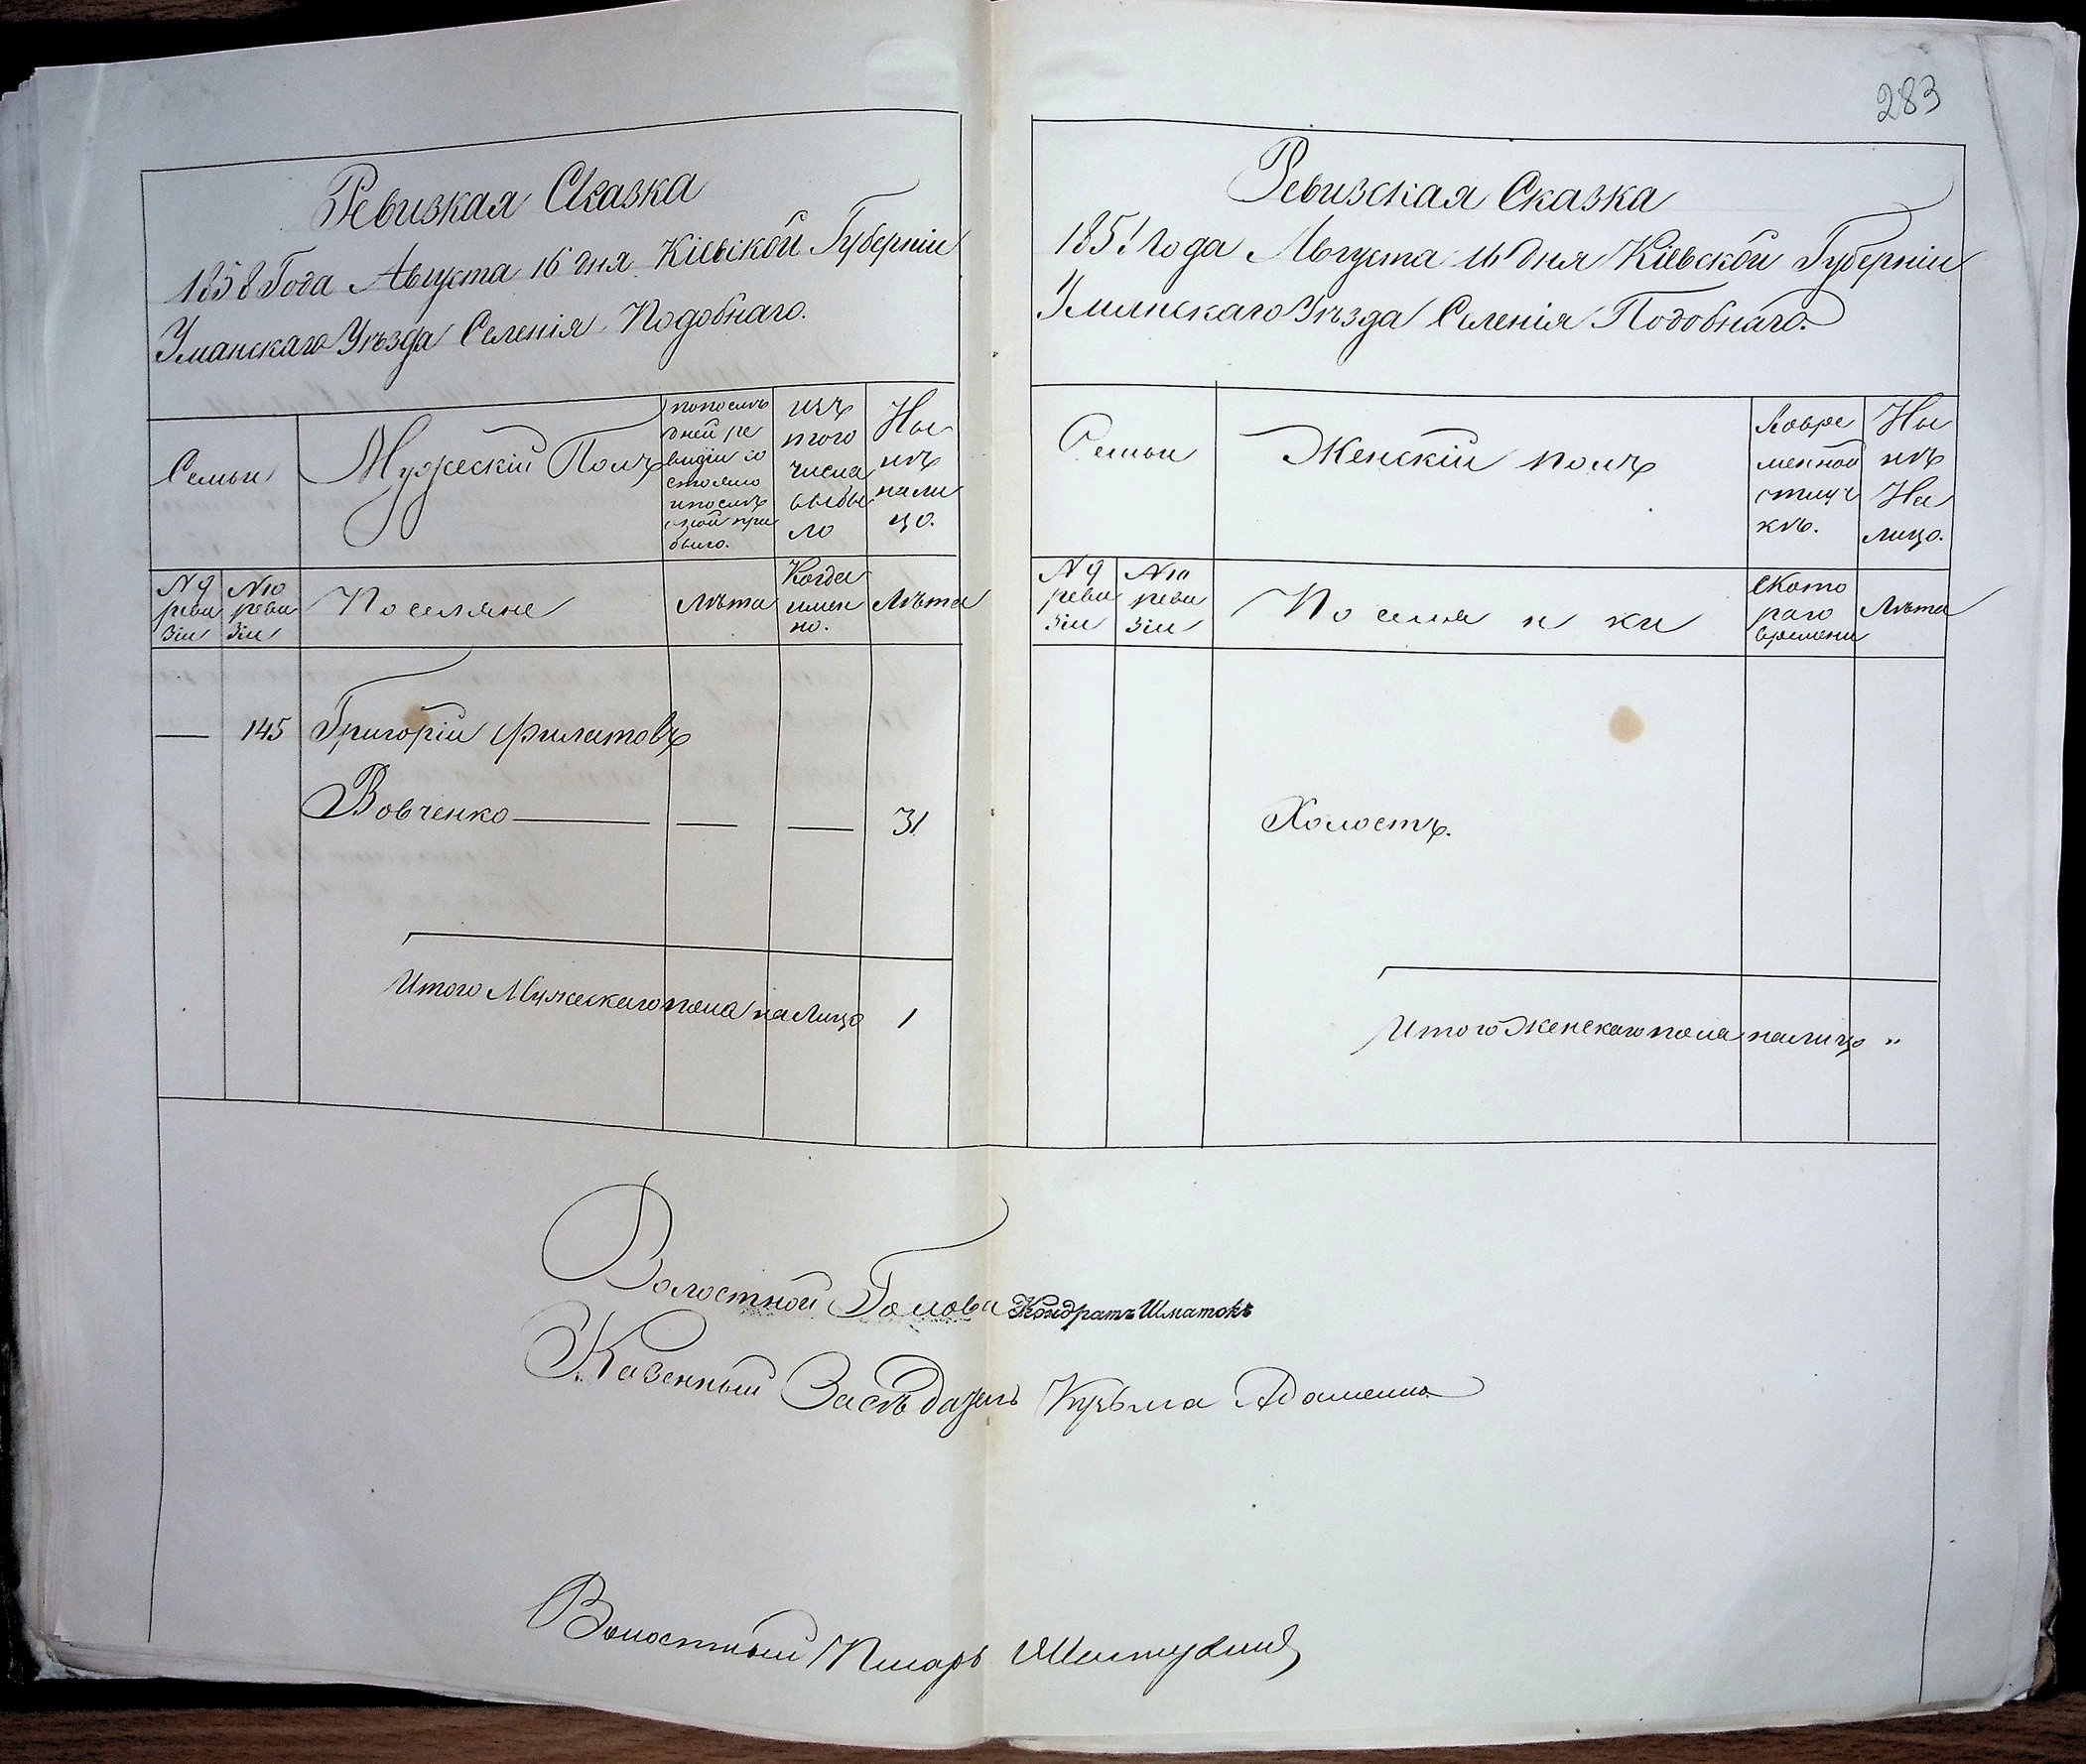 283
Ревизкая Сказка
1858 Года Августа 16 дня Кіевской Губерніи
Уманскаго Уѣзда Селенія Подобнаго.
Семьи
Мужескій Полъ
попослѣ
дней ре
визіи со
стояло
ипослѣ
оной при
было.
изъ
того
числа
выбы
ло
Ны
нѣ
нали
цо.
№ 9
реви
зіи
№ 10
реви
зіи
Поселяне
Лѣта
Когда
имен
но.
Лѣта
— 145 Григорій Филатовъ
Вовченко — — — 31
Итого Мужескаго пола на Лицо 1
Ревизская Сказка
185! Года Августа 16 дня Кіевской Губерніи
Уманскаго Уѣзда Селенія Подобнаго.
Семьи
Женскій полъ
Вовре
менной
отлуч
кѣ.
Ны
нѣ
На
лицо.
№ 9
реви
зіи
№ 10
реви
зіи
Поселянки
Ското
раго
времени
Лѣта
Холостъ.
Итого Женскаго пола налицо "
Волостной Голова Кондратъ Шматокъ
Казенный Засѣдатель Кузьма
Волостный Писарь